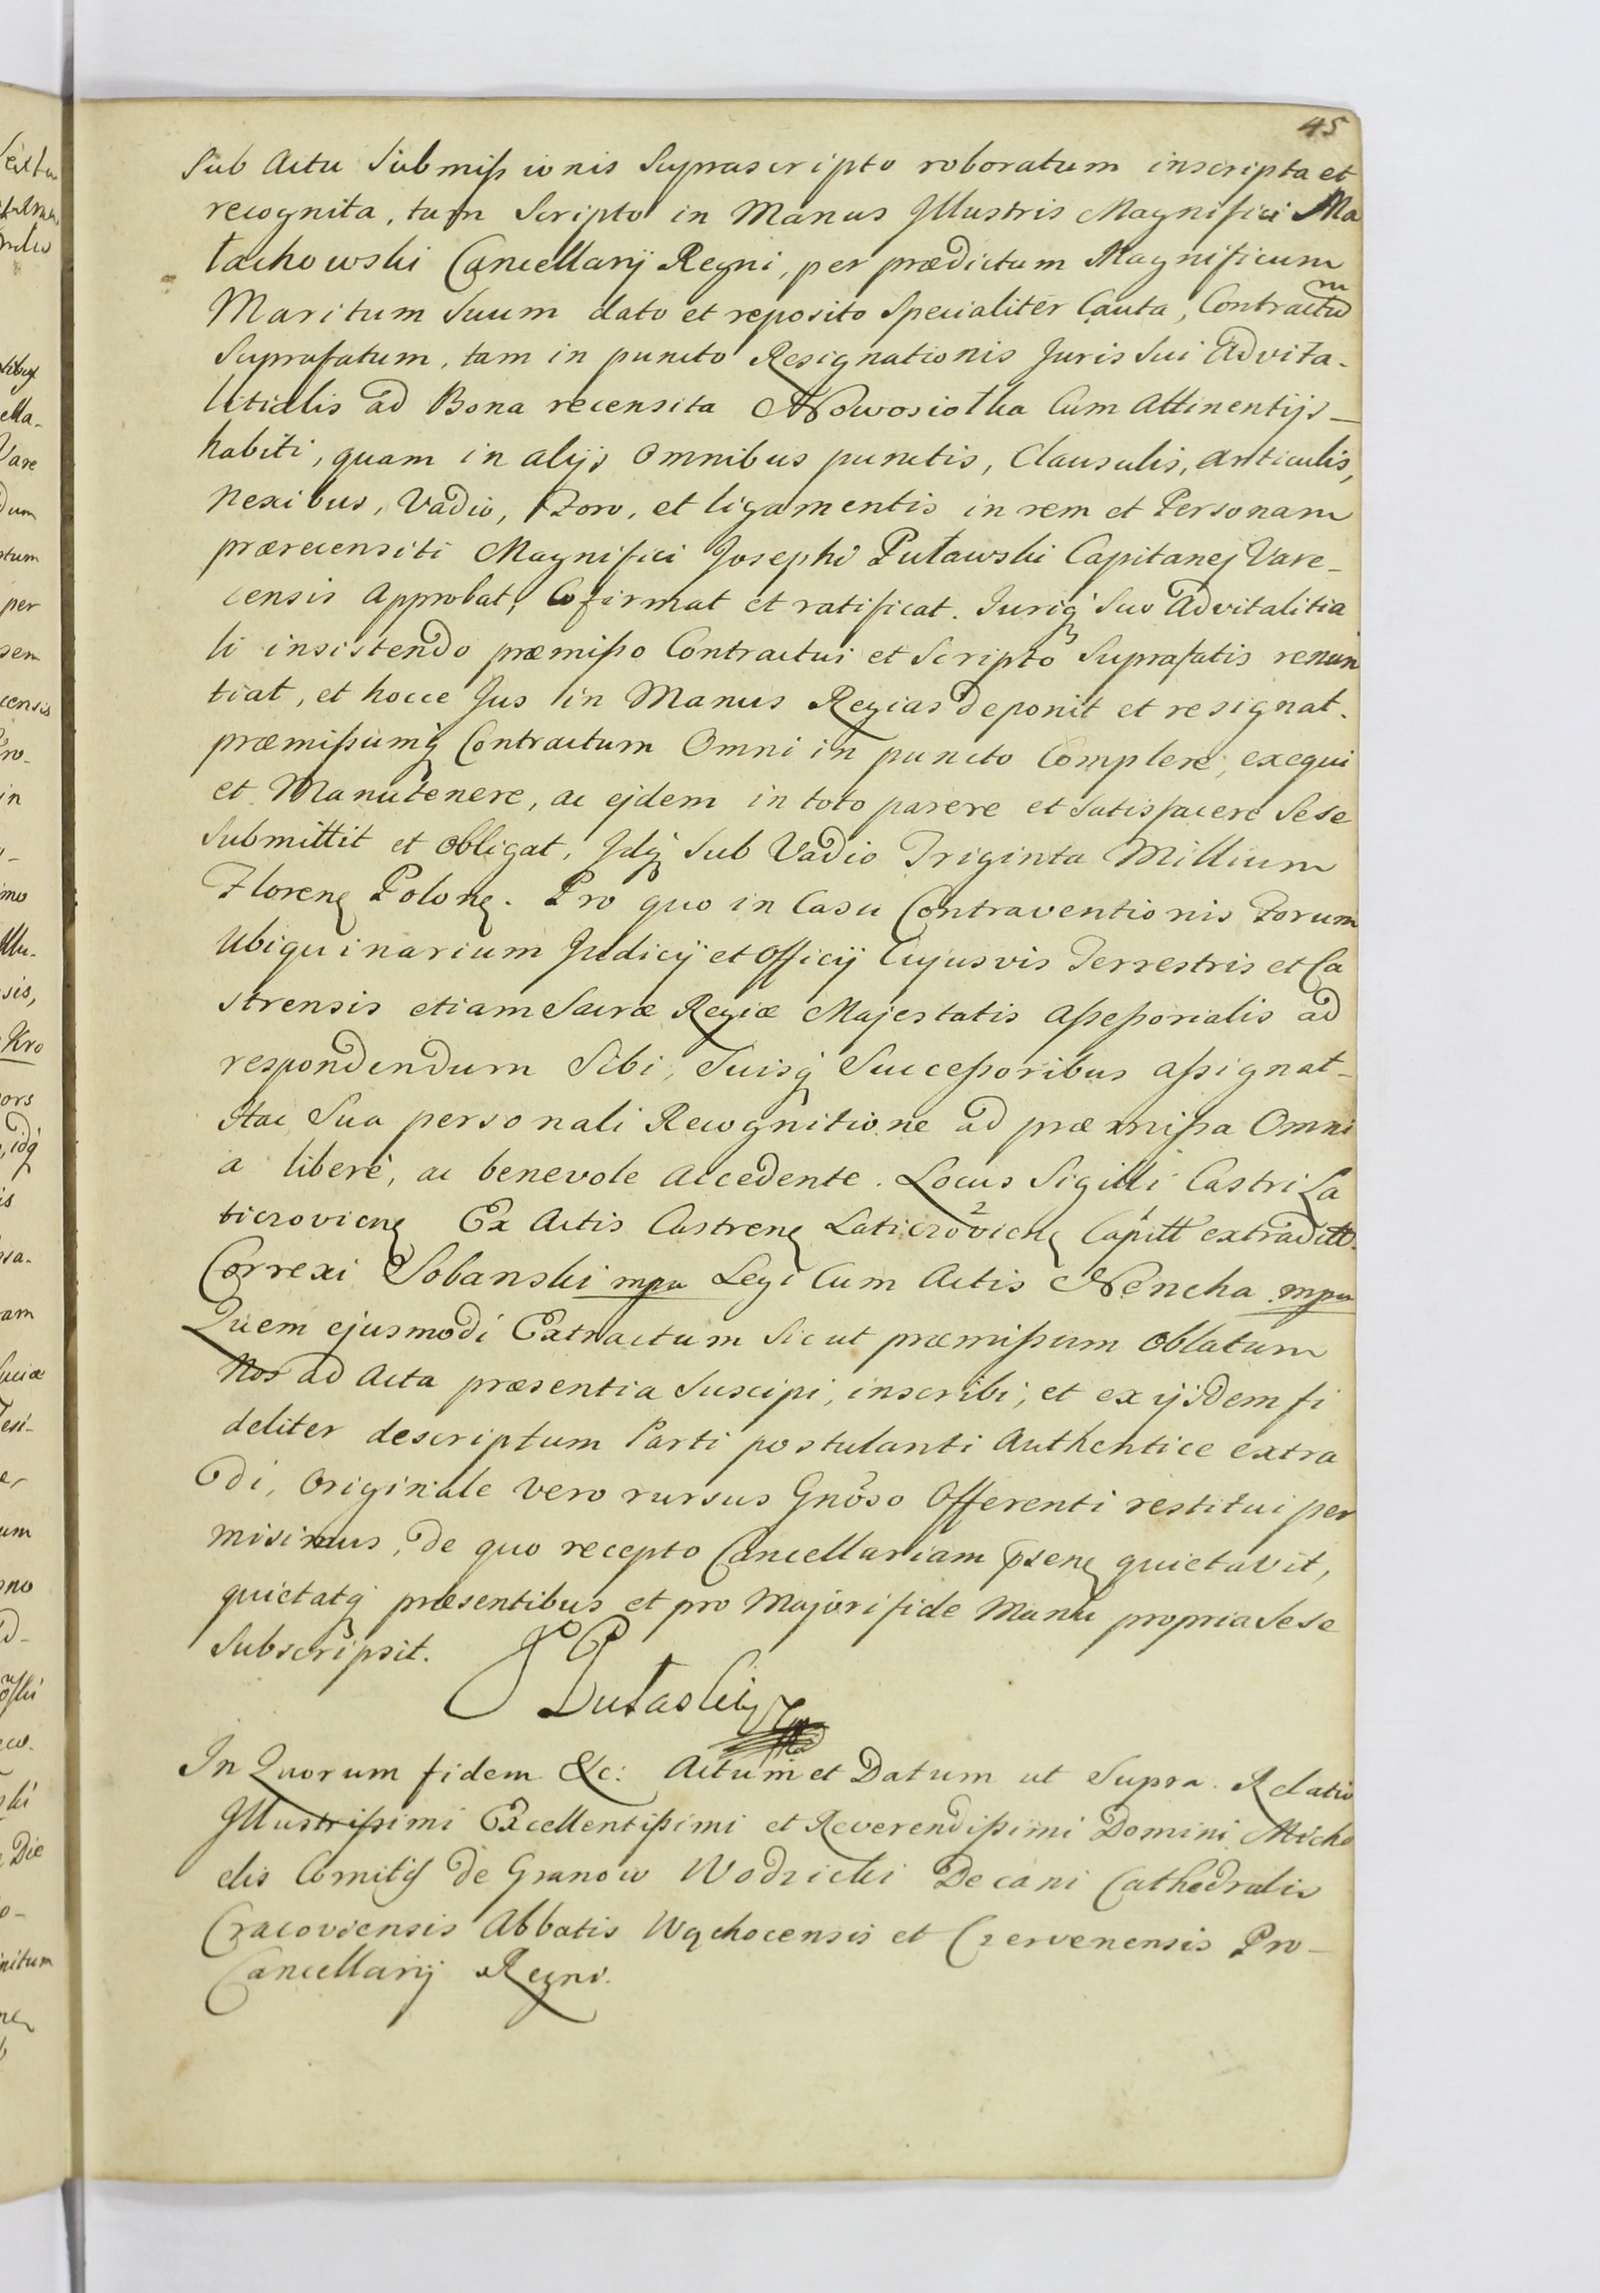 45
Sub Actu Submissionis Suprascripto roboratum inscripta et
recognita, tum Scripto in Manus Illustris Magnifici Ma
łachowski Cancellarij Regni, per prædictum Magnificum
Maritum Suum dato et reposito Specialiter Cauta, Contractum
Suprafatum, tam in puncto Resignationis Juris Sui Advita-
litialis ad Bona recensita Nowosiołka Cum Attinentijs
habiti, quam in alijs Omnibus punctis, Clausulis, Articulis,
Nexibus, Vadio, Foro, et ligamentis in rem et Personam
prærecensiti Magnifici Josephi Puławski Capitanej Vare-
censis Approbat, Cofirmat et ratificat. Juriq Suo Advitalitia
li insistendo præmisso Contractui et Scripto Suprafatis renun
tiat, et hocce Jus in Manus Regias deponit et resignat.
præmissumq Contractum Omni in puncto Complere, exequi
et Manutenere, ac ejdem in toto parere et Satisfacere Sese
Submittit et obligat, Idq Sub Vadio Triginta Millium
Floren Polon. Pro quo in Casu Contraventionis Forum
Ubiquinarium Judicij et Officij Cujusvis Terrestris et Ca
strensis etiam Sacræ Regiæ Majestatis Assessorialis ad
respondendum Sibi, Suisq Successoribus assignat-
Hac Sua personali Recognitione ad præmissa Omni
a liberè, ac benevole Accedente. Locus Sigilli Castri La
ticzovicn Ex Actis Castren Laticzovicn Capitt extradit.
Correxi Sobanski mpa Legi Cum Actis Nencha mpa
Quem ejusmodi Extractum Sicut præmissum Oblatum
Nos ad Acta præsentia Suscipi, inscribi, et ex ijsdem fi
deliter descriptum Parti postulanti Authentice extra
di, Originale vero rursus Gnoso Offerenti restitui per
misimus, de quo recepto Cancellariam psen quietavit,
quietatq præsentibus et pro Majori fide Manu propria Sese
Subscripsit.
In Quorum fidem &c: Actum et Datum ut Supra. Relatio
Illustrissimi Excellentissimi et Reverendissimi Domini Micha
elis Comitis de Granow Wodzicki Decani Cathedralis
Cracoviensis Abbatis Wąchocensis et Czervenensis Pro-
Cancellarij Regni.